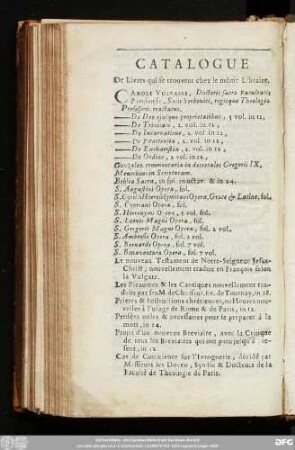 CATALOGUE
De Livres qui se trouvent chez le même Libraire.
CAROLI VUITASSE, Doctoris sacræ Facultatis
Parisiensis, Socii Sorbonici, regiique Theologiæ
Professoris tractatus,
—— De Deo ejusque proprietatibus, 3 vol. in 12,
—— De Trinitate, 2. vol. in 12,
—— De Incarnatione, 2. vol. in 12,
—— De Pœnitentia, 2. vol. in 12,
—— De Eucharistia, 2. vol. in 12,
—— De Ordine, 2. vol. in 12,
Gonzales commentaria in decretales Gregorii IX,
Menochius in Scripturam.
Biblia Sacra, in fol. in octav. & in 24.
S. Augustini Opera, fol.
S. Cyrilli Hierosolymitani Opera, Grace & Latine, fol.
S. Cypriani Opera, fol.
S. Hieronymi Opera, 5 vol. fol.
S. Leonis Magni Opera, fol.
S. Gregorii Magni Opera, 4 vol. fol.
S. Ambrosii Opera, 2 vol. fol.
S. Bernardi Opera, fol. 7 vol.
S. Bonaventuræ Opera, fol. 7 vol.
Le nouveau Testament de Notre-Seigneur Jesus-
Christ, nouvellement traduit en François selon
la Vulgate.
Les Pseaumes & les Cantiques nouvellement tra-
duits par feu M. de Choiseul, Ev. de Tournay, in 18.
Prieres & Instructions chrétiennes, ou Heures nou-
velles à l'usage de Rome & de Paris, in 12.
Pensées utiles & necessaires pour se preparer à la
mort, in 24.
Projet d'un nouveau Breviaire, avec la Critique
de tous les Breviaires qui ont paru jusqu'à présent, in 12.
Cas de Conscience sur l'Ivrognerie, décidé par
Messieurs les Doyen, Syndic & Docteurs de la
Faculté de Theologie de Paris.